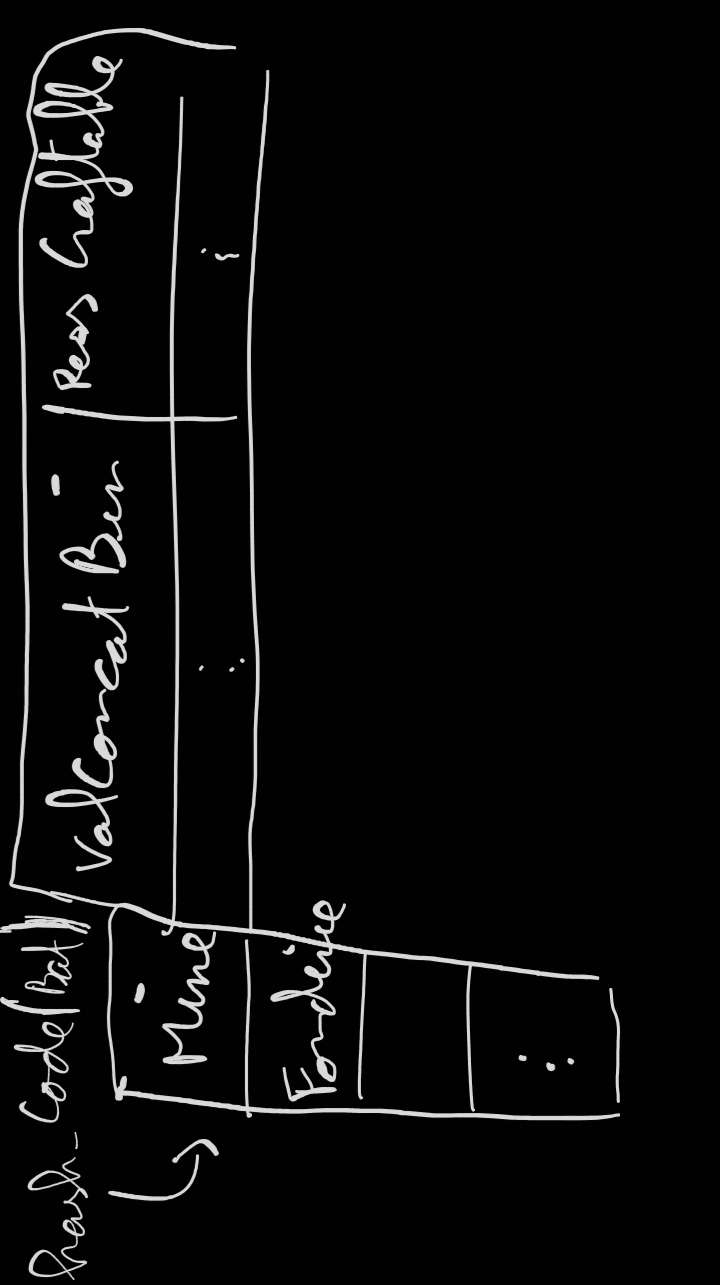 hash_Code(Bat)
ValConcat Bin
Ress Craftable
Mine
Fonderie